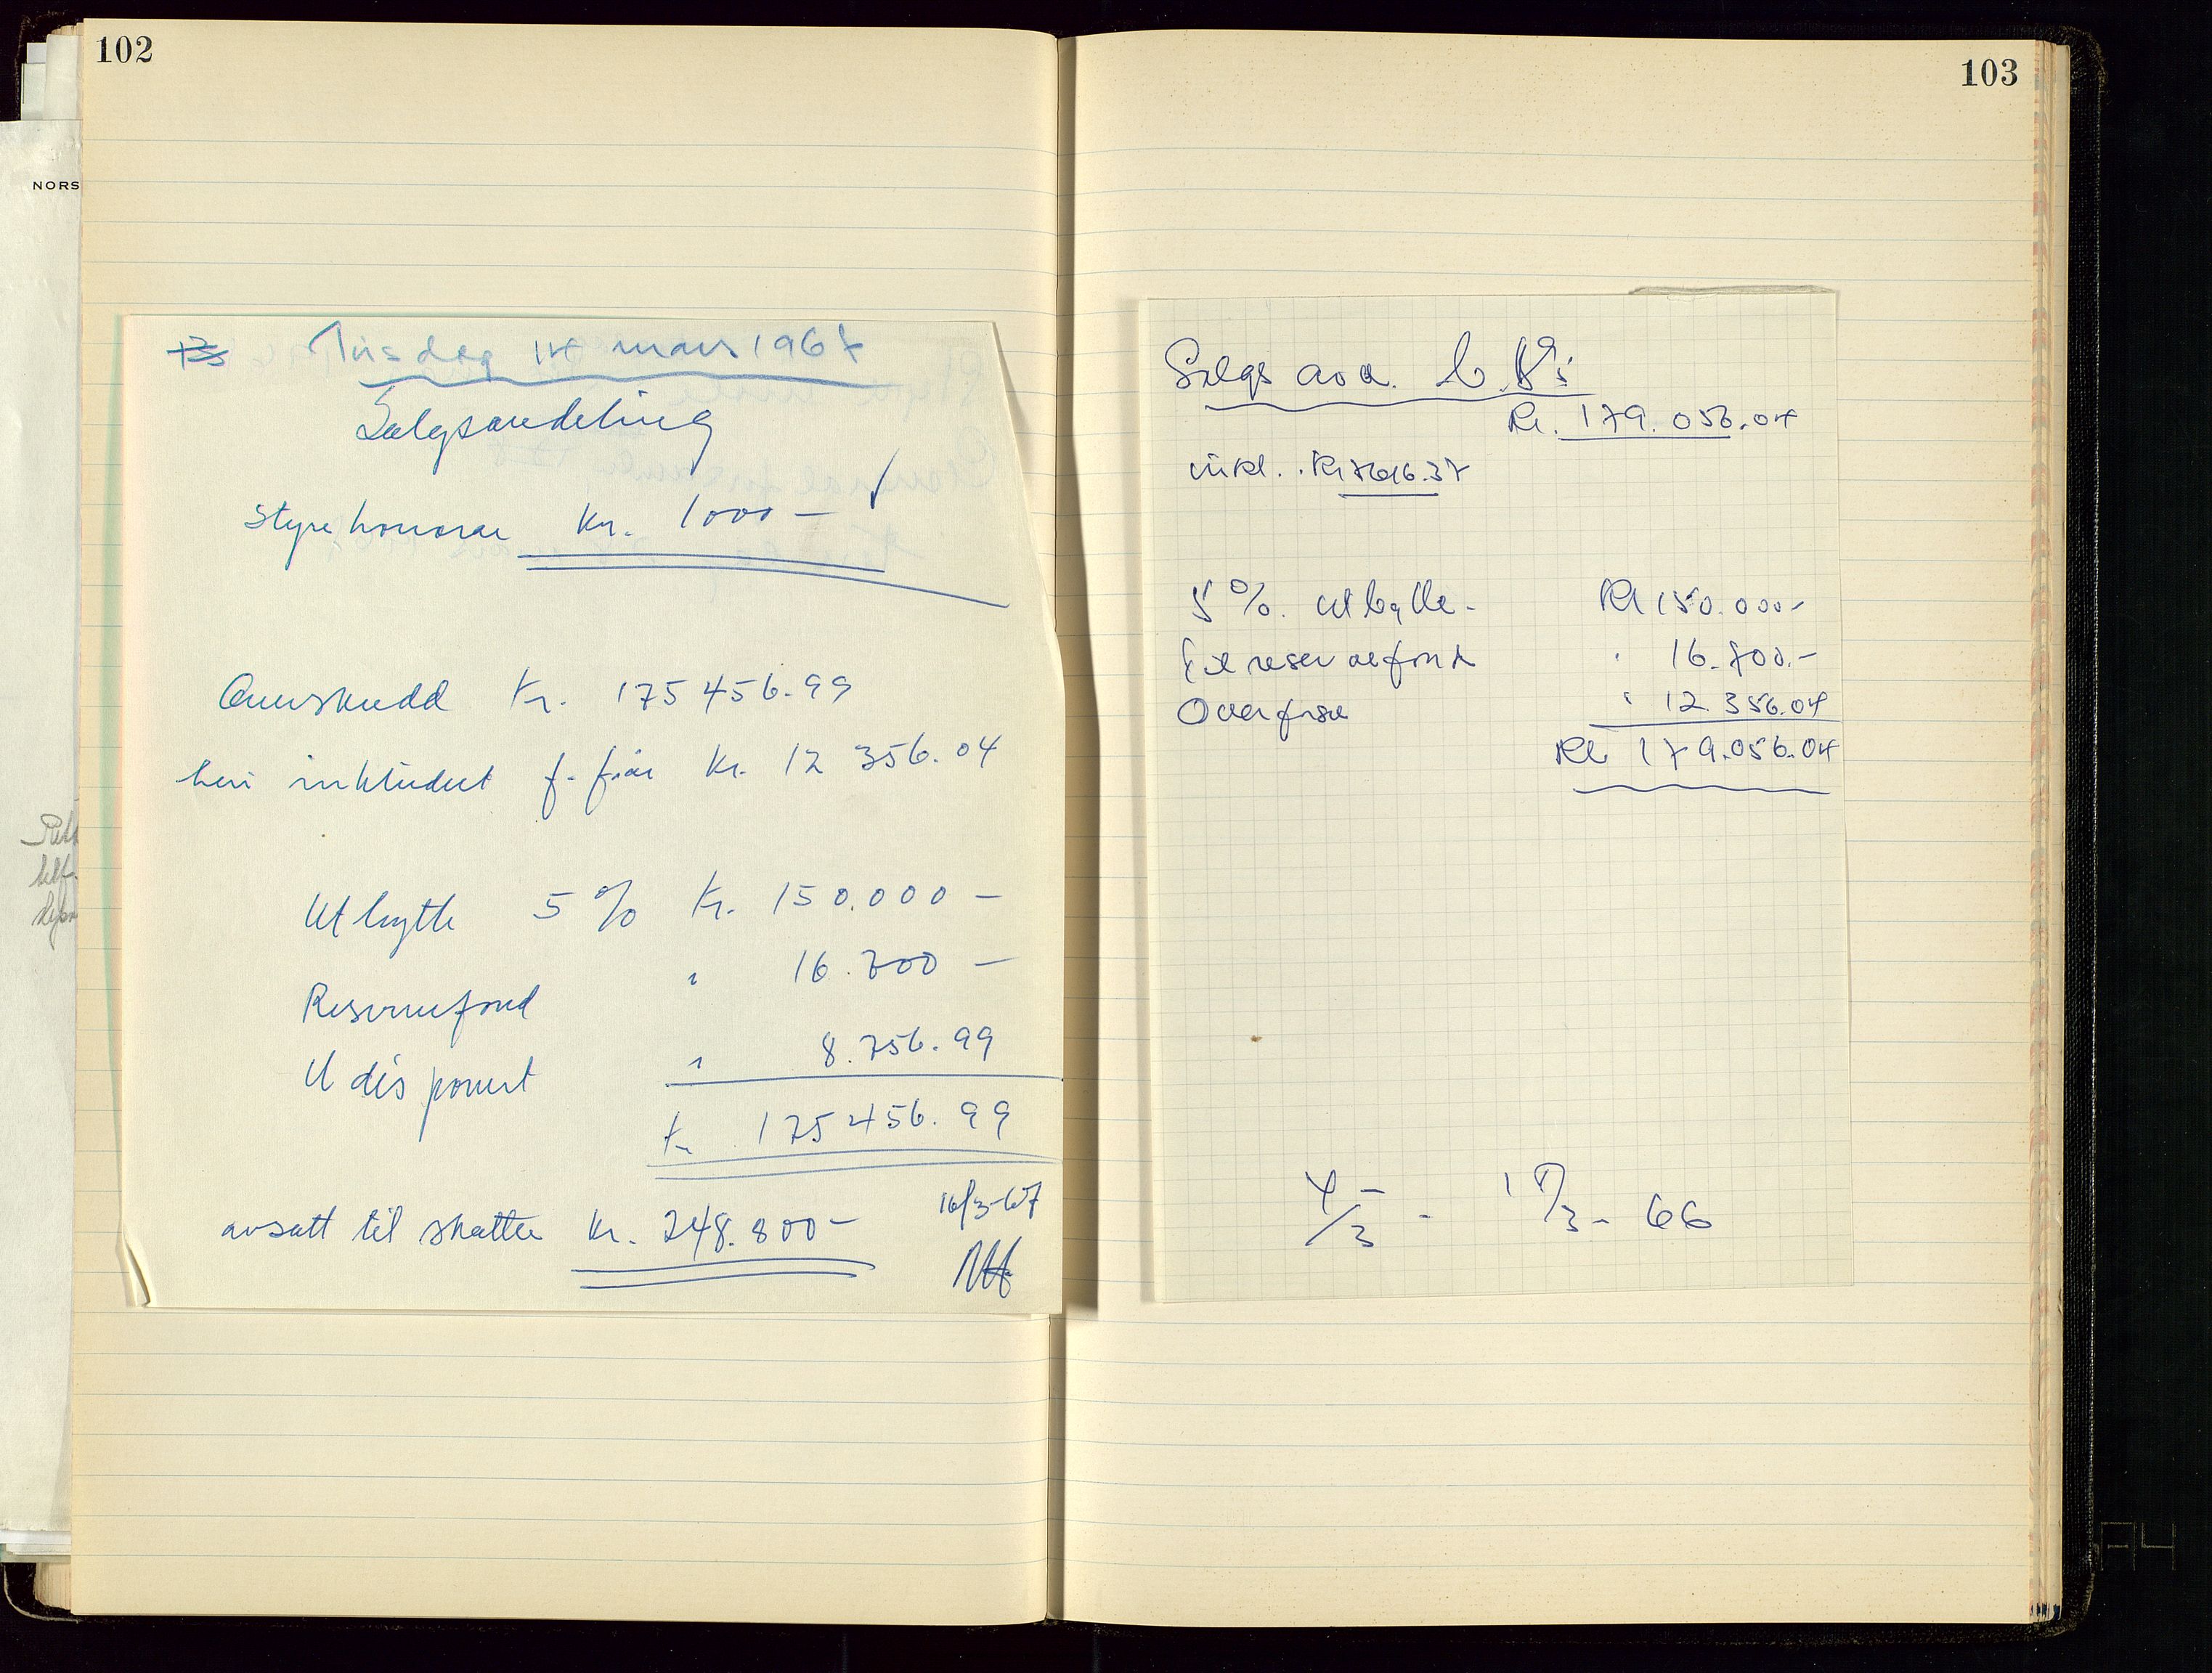 102
103
NORS
Tirsdag 14 mars 1967
Salgsavdeling
Styrehonorar Kr. 1000 –
Overskudd Kr. 175 456.99
heri inkludert f. fjår Kr. 12 356.04
Utbytte 5 % Kr. 150.000 –
Reservefond " 16.700 –
Udisponert " 8.756.99
Kr. 175 456.99
avsatt til skatter Kr. 248.800 –
16/3-67
Salgs avd.
Kr. 179.056.04
inkl. Kr
5 %. utbytte - Kr 150.000 -
Til reservefond " 16.700.-
Overføre " 12.356.04
Kr 179.056.04